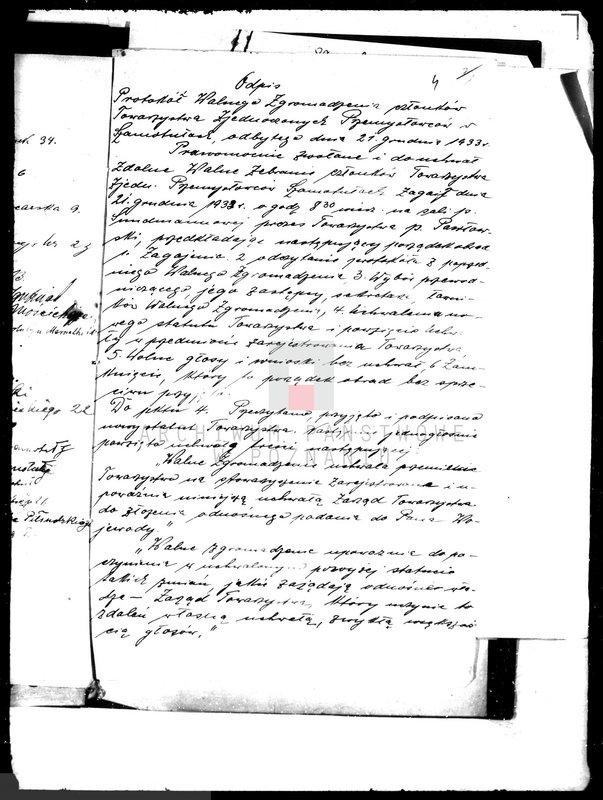 Odpis
4
Protokół Walnego Zgromadzenia członków
Towarzystwa Zjednoczonych Przemysłowców w
Szamotułach, odbytego dnia 21. grudnia 1933 r.
Prawomocnie zwołane i do uchwał
zdolne Walne Zebranie członków Towarzystwa
Zjedn. Przemysłowców Szamotułach zagaił dnia
21. grudnia 1933 r. o godz 8 30 wiecz. na sali p.
Sundmannowej prezes Towarzystwa p. Pawłow-
ski, przedkładając następujący porządek obrad
1. Zagajenie. 2 odczytanie protokółu z poprzed-
niego Walnego Zgromadzenia 3. Wybór przewod-
niczącego jego zastępcy, sekretarza, ławni-
ków Walnego Zgromadzenia, 4. Uchwalenie no-
wego statutu Towarzystwa i powzięcie uchwa-
ły w przedmiocie zarejestrowania Towarzystwa
5. Wolne głosy i wnioski bez uchwał 6 Zam-
knięcie, który to porządek obrad bez sprze-
ciwu przyjęto.
Do pktu 4. Przeczytano, przyjęto i podpisano
nowy statut Towarzystwa jednogłośnie
powzięto uchwałę treści następującej
„Walne Zgromadzenie uchwala przemianę
Towarzystwa na stowarzyszenie zarejestrowane i u-
poważnia niniejszą uchwałą Zarząd Towarzystwa
do złożenia odnośnego podania do Pana Wo-
jewody."
„Walne zgromadzenie upoważnia do po-
czynienia w uchwalonym powyżej statucie
takich zmian jakich zażądają odnośne wła-
dze — Zarząd Towarzystwa, który uczynić to
zdoła własną uchwałą, zwykłą większoś-
cią głosów."
34.
6
9.
23
ARCHIWUM PAŃSTWOWE
W POZNANIU